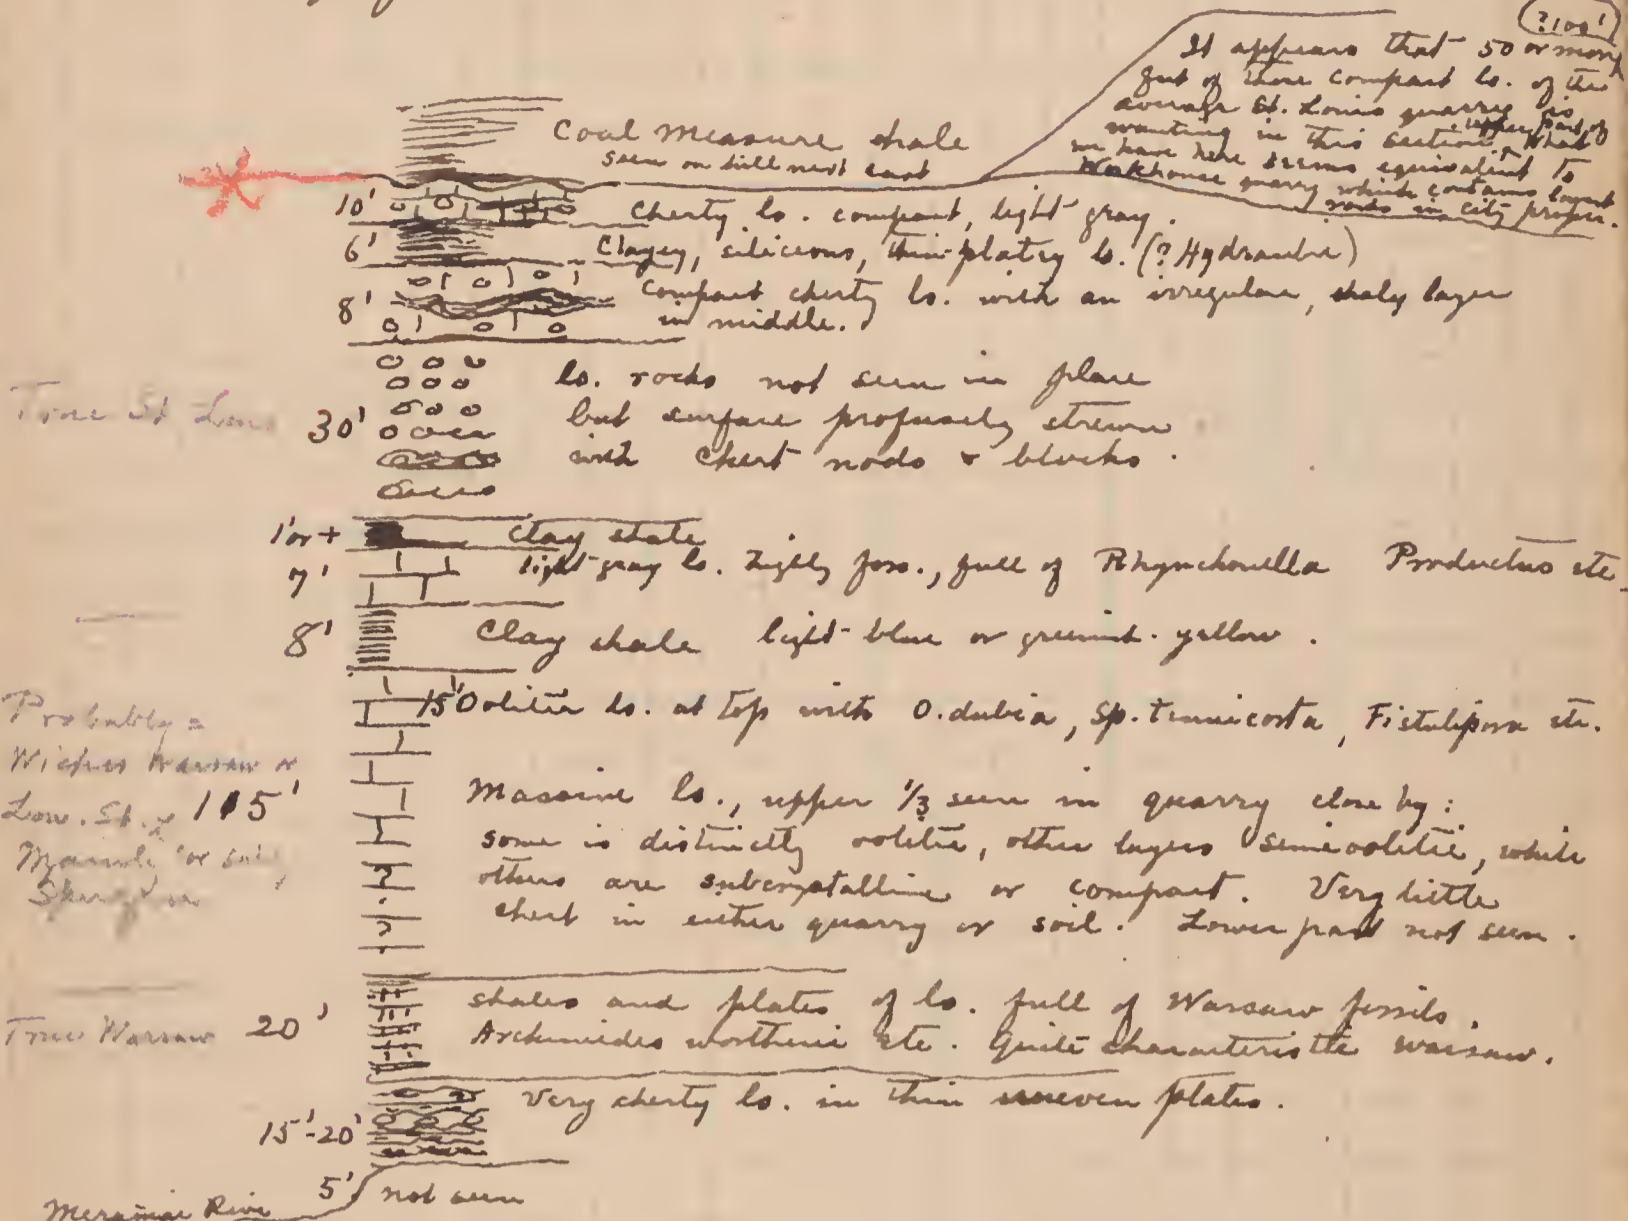 ?100'
It appears that 50 or more
feet of more compact ls. of the
average St. Louis quarry is
wanting in this section, What
upper part of
we have here seems equivalent to
Workhouse quarry which contains lowest
rocks in city proper.
Coal Measure shale
seen on hill next east
10' Cherty ls. compact, light gray.
6' Clayey, siliceous, thin-platy ls. (? Hydraulic)
8' Compact cherty ls. with an irregular, shaly layer
in middle.
ls. rocks not seen in place
True St. Louis 30' but surface profusely strewn
with chert nods & blocks.
1' or + Clay shale
7' light gray ls. highly foss., full of Rhynchonella Productus etc.
8' Clay shale light-blue or greenish-yellow.
15' Oolitic ls. at top with O. dubia, Sp. tenuicosta, Fistulipora etc.
Probably =
Warsaw or
Low. St. L
115' Massive ls., upper 1/3 seen in quarry close by:
some is distinctly oolitic, other layers semioolitic, while
others are subcrystalline or compact. Very little
chert in either quarry or soil. Lower part not seen.
True Warsaw 20' shales and plates of ls. full of Warsaw fossils.
Archimedes wortheni etc. Quite characteristic Warsaw.
15'-20' Very cherty ls. in thin uneven plates.
5' not seen
Meramec River